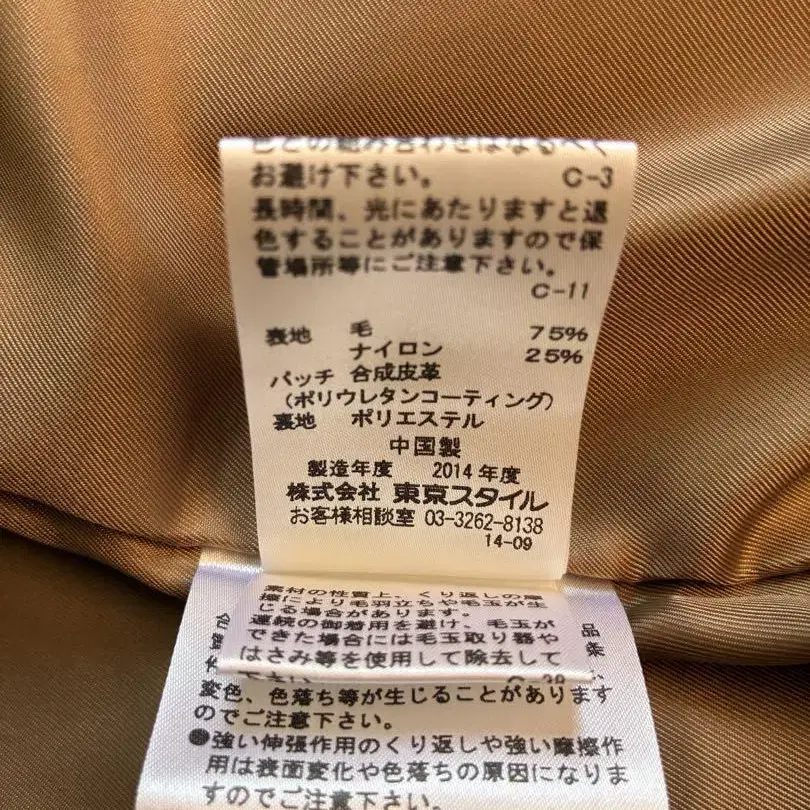 色との組み合わせはなるべく
お避け下さい。 C-3
長時間、光にあたりますと退
色することがありますので保
管場所等にご注意下さい。
C-11
表地 毛 75%
ナイロン 25%
パッチ 合成皮革
(ポリウレタンコーティング)
裏地 ポリエステル
中国製
製造年度 2014年度
株式会社 東京スタイル
お客様相談室 03-3262-8138
14-09
素材の性質上、くり返しの摩
擦により毛羽立ちや毛玉が生
じる場合があります。
連続の御着用を避け、毛玉が
できた場合には毛玉取り器や
はさみ等を使用して除去して
C-38
変色、色落ち等が生じることがあります
のでご注意下さい。
●強い伸張作用のくり返しや強い摩擦作
用は表面変化や色落ちの原因になりま
すのでご注意下さい。